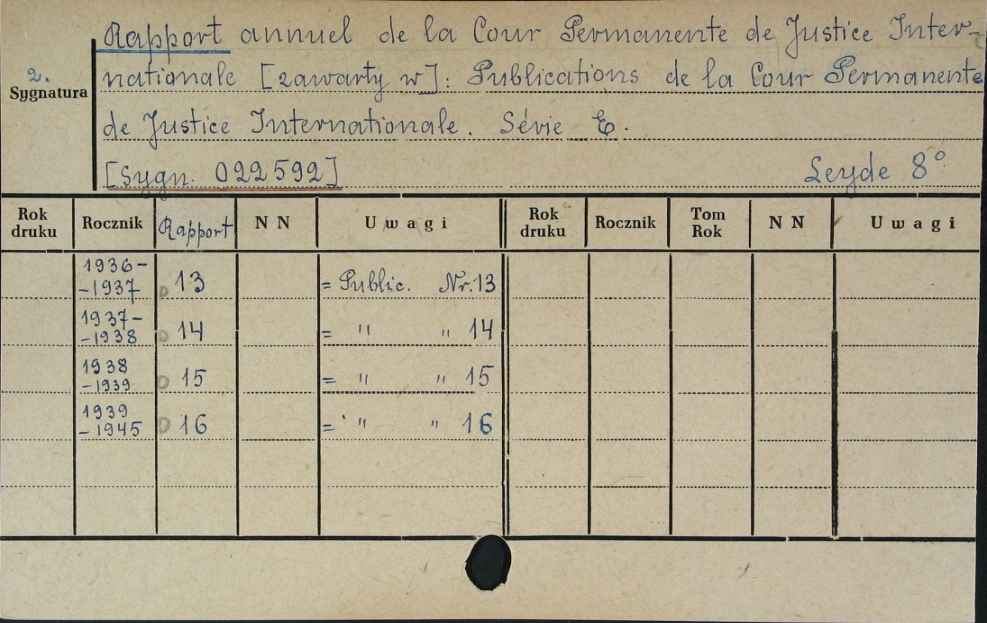 Rapport annuel de la Cour Permanente de Justice Inter-
2. nationale [zawarty w]: Publications de la Cour Permanente
Sygnatura
de Justice Internationale. Série E.
[Sygn. 022592] Leyde 8°
Rok druku Rocznik Rapport NN Uwagi Rok druku Rocznik Tom Rok NN Uwagi
1936-
-1937 13 = Public. Nr. 13
1937-
-1938 14 = " " 14
1938
-1939 15 = " " 15
1939
-1945 16 = " " 16